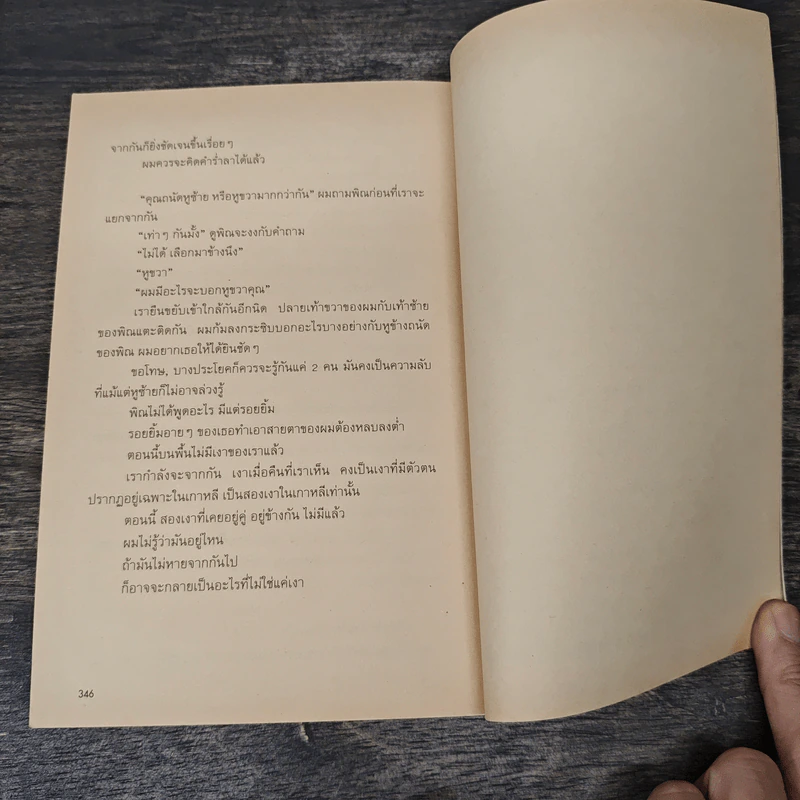 จากกันก็ยิ่งชัดเจนขึ้นเรื่อยๆ
ผมควรจะคิดคำร่ำลาได้แล้ว
“คุณถนัดหูซ้าย หรือหูขวามากกว่ากัน” ผมถามพิณก่อนที่เราจะ
แยกจากกัน
“เท่าๆ กันมั้ง” ดูพิณจะงงกับคำถาม
“ไม่ได้ เลือกมาข้างนึง”
“หูขวา”
“ผมมีอะไรจะบอกหูขวาคุณ”
เรายืนขยับเข้าใกล้กันอีกนิด ปลายเท้าขวาของผมกับเท้าซ้าย
ของพิณแตะติดกัน ผมก้มลงกระซิบบอกอะไรบางอย่างกับหูข้างถนัด
ของพิณ ผมอยากเธอให้ได้ยินชัดๆ
ขอโทษ, บางประโยคก็ควรจะรู้กันแค่ 2 คน มันคงเป็นความลับ
ที่แม้แต่หูซ้ายก็ไม่อาจล่วงรู้
พิณไม่ได้พูดอะไร มีแต่รอยยิ้ม
รอยยิ้มอายๆ ของเธอทำเอาสายตาของผมต้องหลบลงต่ำ
ตอนนี้บนพื้นไม่มีเงาของเราแล้ว
เรากำลังจะจากกัน เงาเมื่อคืนที่เราเห็น คงเป็นเงาที่มีตัวตน
ปรากฏอยู่เฉพาะในเกาหลี เป็นสองเงาในเกาหลีเท่านั้น
ตอนนี้ สองเงาที่เคยอยู่คู่ อยู่ข้างกัน ไม่มีแล้ว
ผมไม่รู้ว่ามันอยู่ไหน
ถ้ามันไม่หายจากกันไป
ก็อาจจะกลายเป็นอะไรที่ไม่ใช่แค่เงา
346